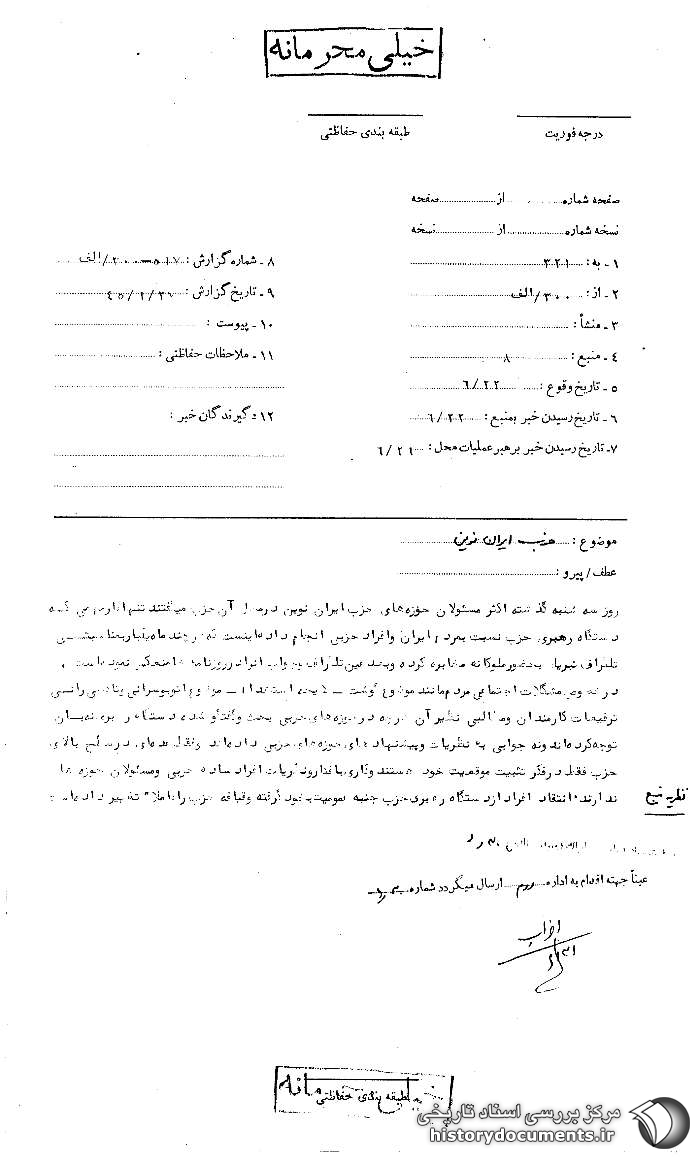 خیلی محرمانه
درجه فوریت
طبقه بندی حفاظتی
صفحه شماره از صفحه
نسخه شماره از نسخه
۱ـ به: ۳۲۱
۲ـ از: ۳۰۰/الف
۳ـ منشأ:
۴ـ منبع: ۸
۵ـ تاریخ وقوع: ۶/۲۲
۶ـ تاریخ رسیدن خبر بمنبع: ۶/۲۲
۷ـ تاریخ رسیدن خبر برهبر عملیات محل: ۶/۲۶
۸ـ شماره گزارش: /الف
۹ـ تاریخ گزارش:
۱۰ـ پیوست:
۱۱ـ ملاحظات حفاظتی:
۱۲ گیرندگان خبر:
موضوع: حزب ایران نوین
عطف/پیرو:
روز سه شنبه گذشته اکثر مسئولان حوزه های حزب ایران نوین در آن حزب میگفتند تنها که
دستگاه رهبری حزب نسبت بمردم ایران وافراد حزبی انجام داده اینست که هر چند ماه یکبار
تلگراف تبریک بحضور ملوکانه مخابره کرده وبعد عین تلگراف وجواب انرا در روزنامه ها منعکس نموده است
در خصوص مشکلات اجتماعی مردم مانند موضوع گوشت ـ لایحه استخدام ـ موضوع اتوبوسرانی وتاکسی رانی
ترفیعات کارمندان ومطالبی نظیر آن هرچه در حوزه های حزبی بحث وگفتگو شده دستگاه رهبری نه بان
توجه کرده اند ونه جوابی به نظریات وپیشنهاد های حوزه های حزبی داده اند وفقط عده ای در سطح بالای
حزب فقط در فکر تثبیت موقعیت خود هستند وکاری با افراد ساده حزبی ومسئولان حوزه ها
ندارند انتقاد افراد از دستگاه رهبری حزب جنبه عمومیت بخود گرفته وقیافه حزب را کاملا تغییر داده است
نظریه منبع
عیناً جهته اقدام به اداره سوم ارسال میگردد شماره
طبقه بندی حفاظتی
مرکز بررسی اسناد تاریخی
historydocuments.ir